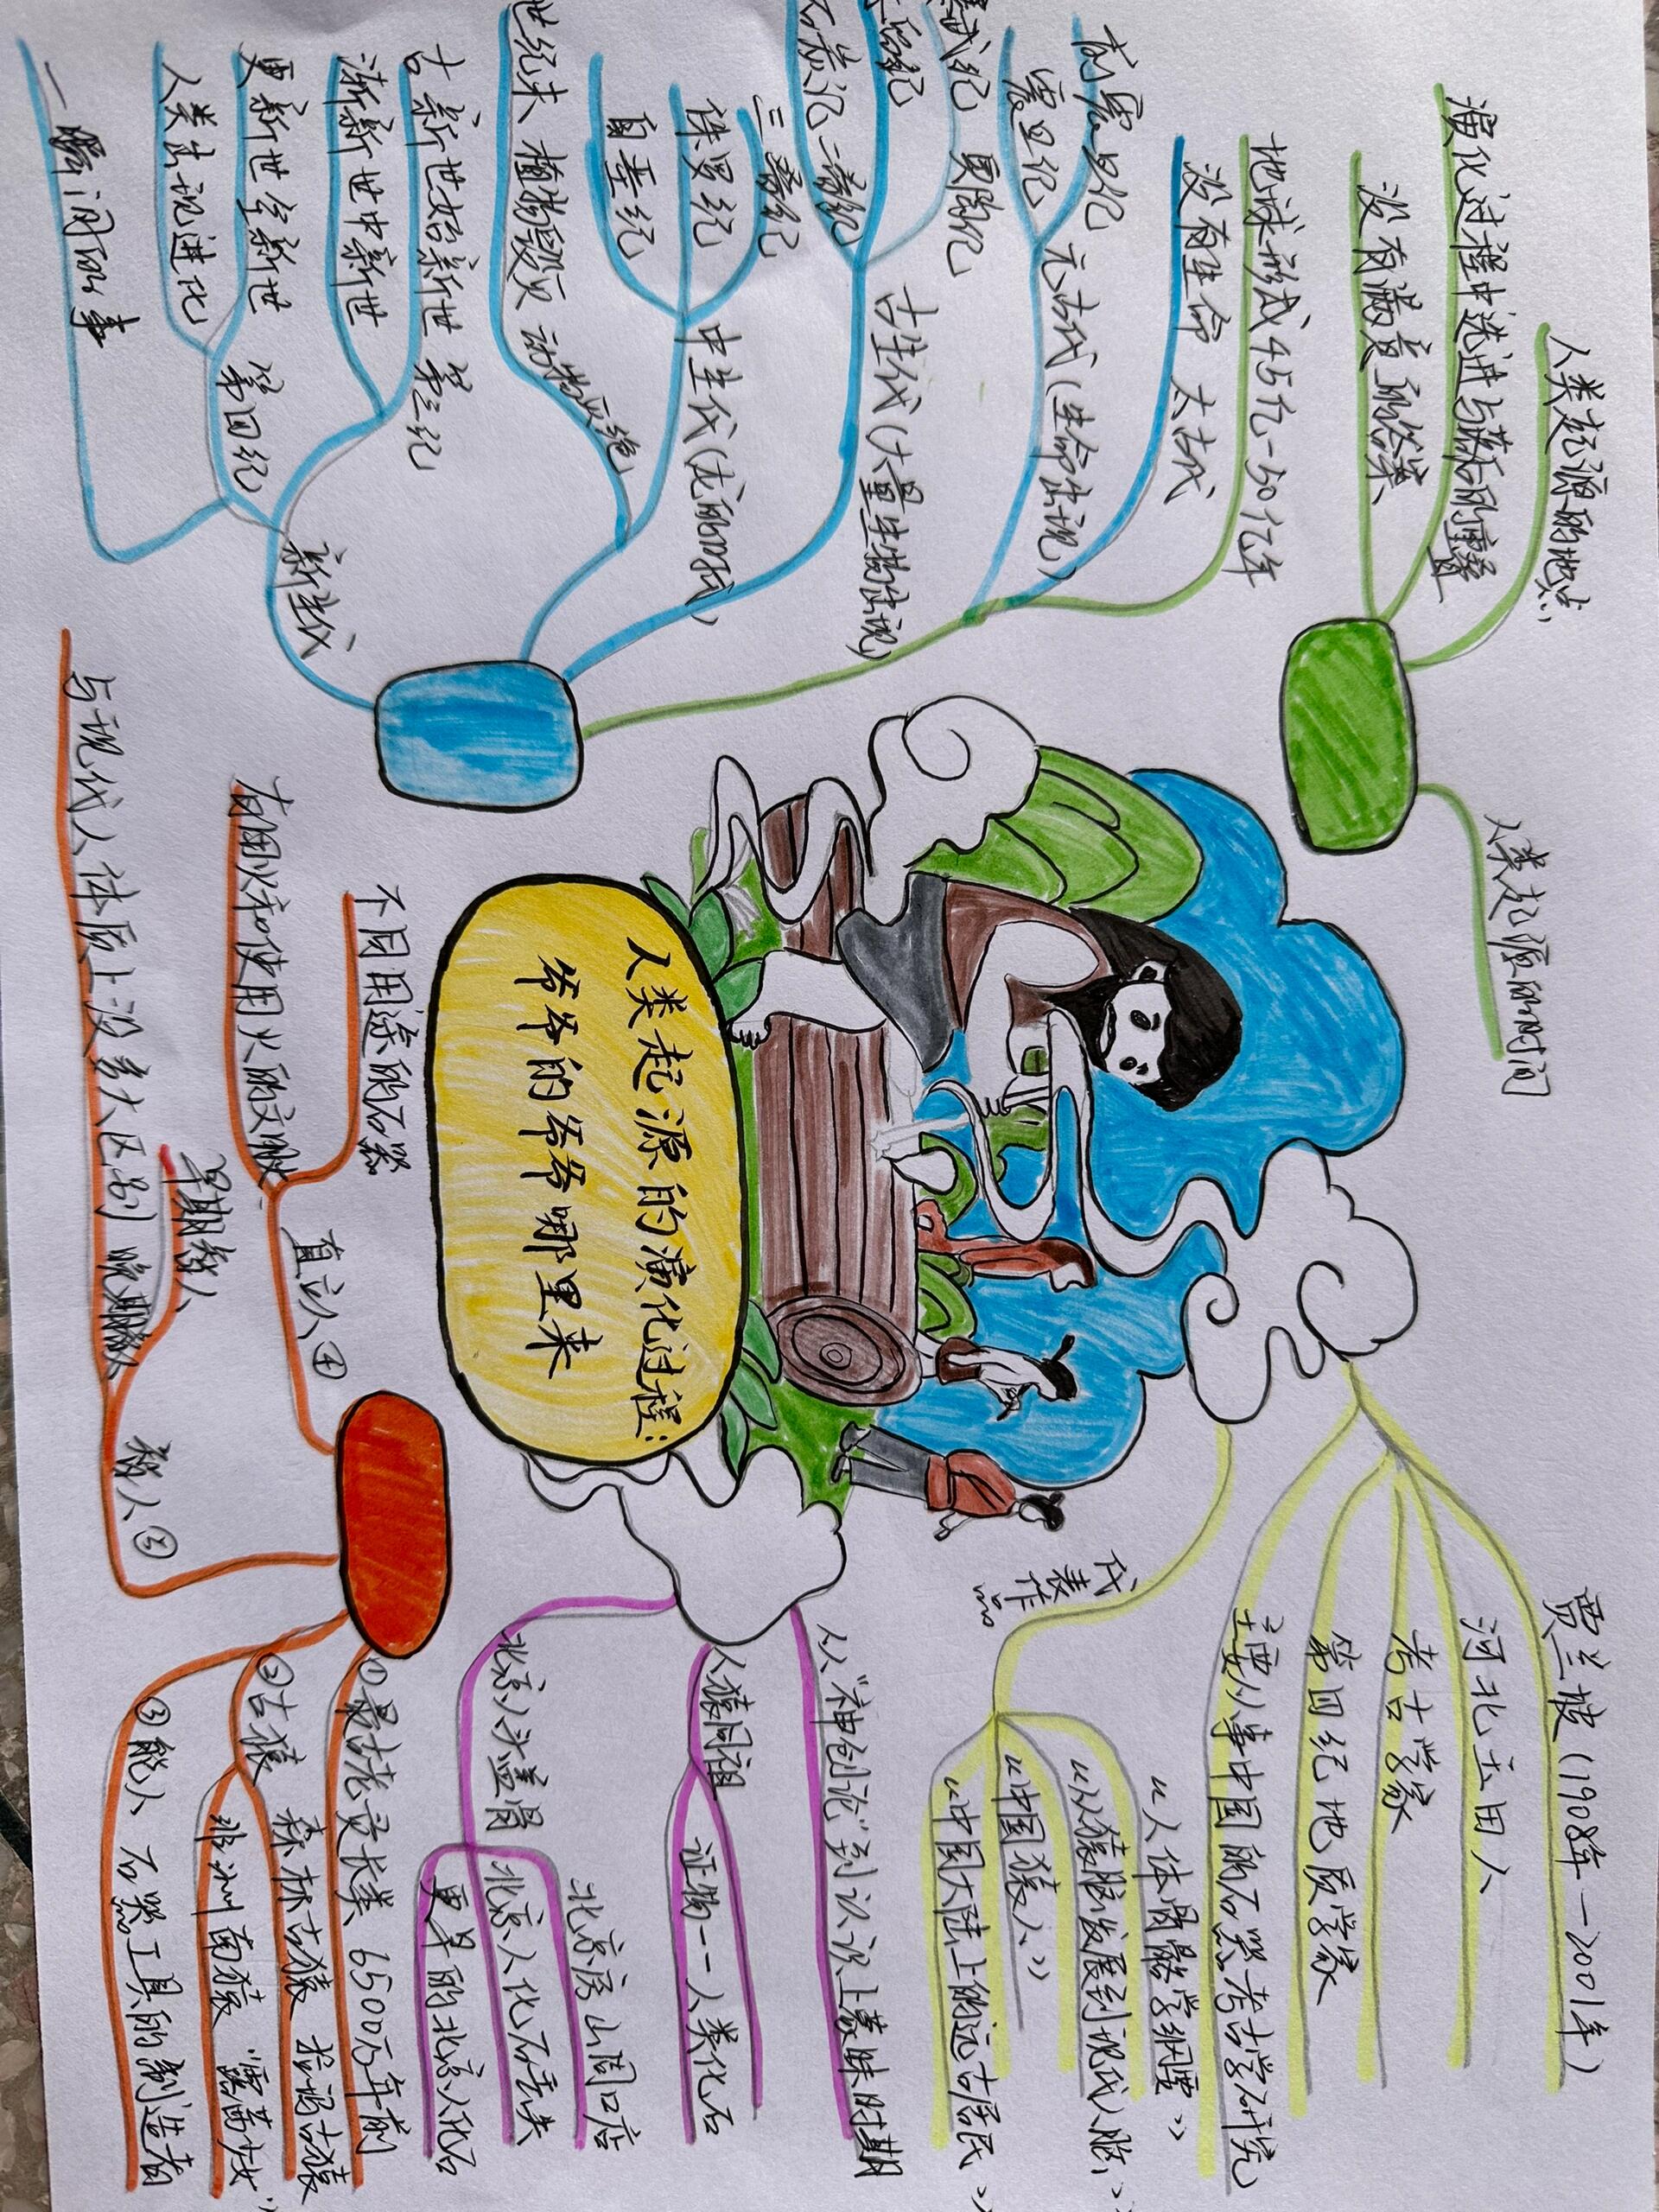 人类起源的演化过程：
爷爷的爷爷哪里来
贾兰坡（1908年—2001年）
河北玉田人
考古学家
第四纪地质学家
主要从事中国的石器考古学研究
代表作品
《人体骨骼学纲要》
《从猿脑发展到现代人脑》
《中国猿人》
《中国大陆上的远古居民》
从“神创论”到认识上蒙昧时期
人猿同祖
证物——人类化石
北京人头盖骨
北京房山周口店
北京人化石丢失
更早的北京人化石
①最古老灵长类 6500万年前
②古猿
森林古猿 拉玛古猿
非洲南猿 “露西少女”
③能人 石器工具的制造者
直立人④
不同用途的石器
有用火和使用火的文献
智人⑤
早期智人
与现代人体质上没多大区别 晚期智人
地球形成45亿—50亿年
没有生命 太古代
元古代（生命出现）
震旦纪
古生代（大量生物出现）
石炭记 二叠纪
中生代（龙的时代）
三叠纪
侏罗纪
白垩纪
植物毁灭 动物灭绝
新生代
古新世始新世 第三纪
渐新世中新世
更新世全新世 第四纪
人类出现进化
一瞬间的事
人类起源的时间
人类起源的地点
演化过程中先进与落后的重叠
没有满意的答案